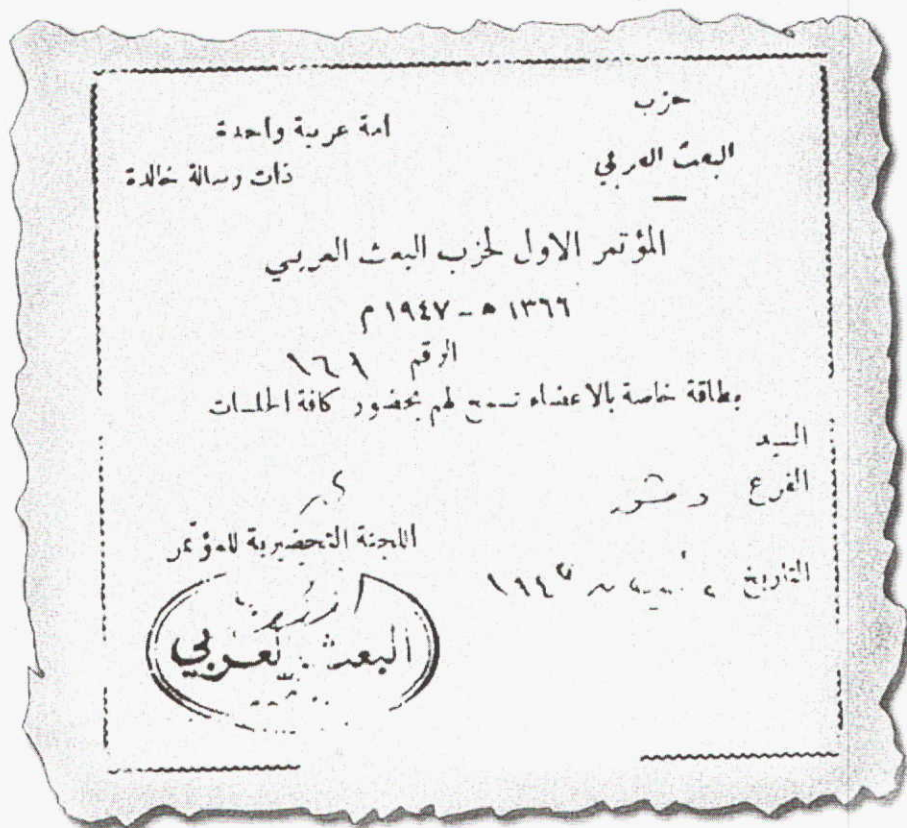 حزب
البعث العربي
امة عربية واحدة
ذات رسالة خالدة
المؤتمر الاول لحزب البعث العربي
١٣٦٦ ه - ١٩٤٧ م
الرقم ١٦٩
بطاقة خاصة بالاعضاء تسمح لهم بحضور كافة الجلسات
السيد
الفرع دمشق
التاريخ ١٩٤٧
اللجنة التحضيرية للمؤتمر
البعث العربي